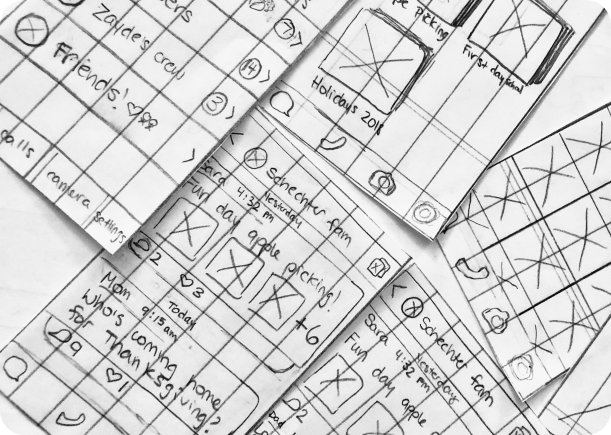 Zayde's crew
Friends!
7
14
3
calls
camera
settings
Picking
First day school
Holidays 2018
Schechter fam
Sara
4:32 pm
Yesterday
Fun day apple picking!
+6
2
3
Mom
9:15 am
Today
Who's coming home
for Thanksgiving?
9
1
Schechter fam
Sara
4:32 pm
Yesterday
Fun day apple
2
Dad